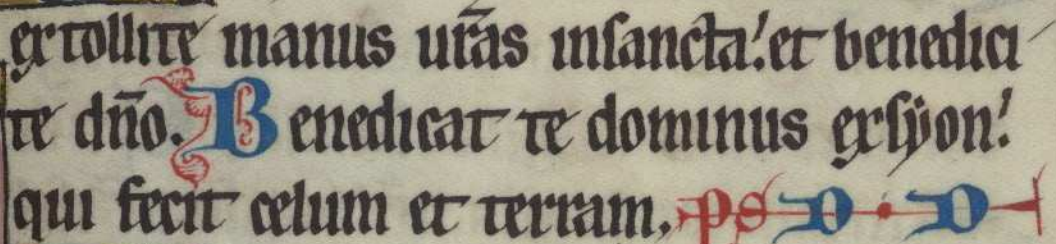 extollite manus ur̄as insancta: et benedici
te dn̄o. Benedicat te dominus exsyon:
qui fecit celum et terram. ps D · D